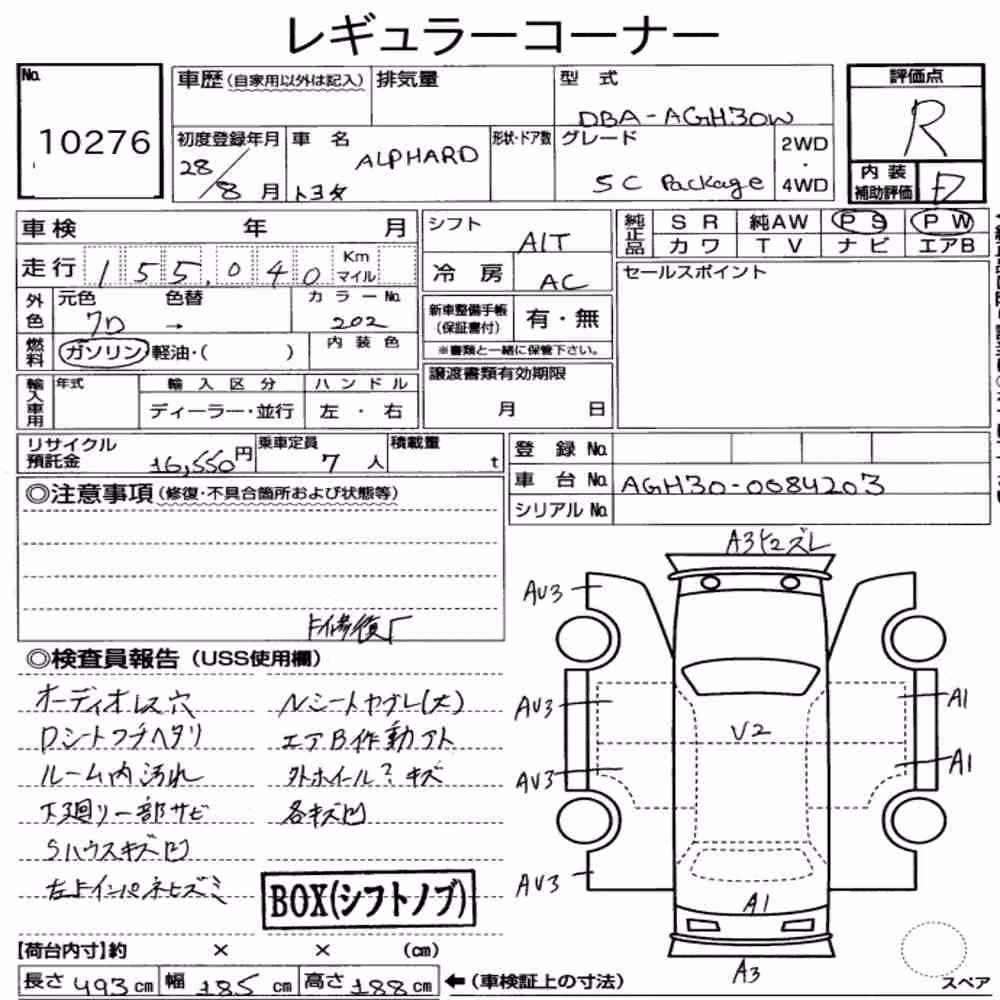 レギュラーコーナー
No.
10276
車歴(自家用以外は記入)
排気量
型 式
DBA-AGH30W
評価点
R
初度登録年月
28/8 月
車 名
ALPHARD
トヨタ
形状・ドア数
グレード
SC Package
2WD
・
4WD
内 装
補助評価
車検 年 月
走行 155,040 Km マイル
外色
元色 色替
クロ →
カラーNo.
202
燃料
ガソリン・軽油・( )
内 装 色
輸入車用
年式
輸 入 区 分
ディーラー・並行
ハ ン ド ル
左 ・ 右
シフト
A/T
冷 房
AC
新車整備手帳
(保証書付)
有・無
※書類と一緒に保管下さい。
譲渡書類有効期限
月 日
純正品
SR 純AW PS PW
カワ TV ナビ エアB
セールスポイント
リサイクル
預託金
16,550円
乗車定員
7 人
積載量
t
登 録 No.
車 台 No. AGH30-0084203
シリアル No.
◎注意事項(修復・不具合箇所および状態等)
◎検査員報告(USS使用欄)
オーディオレス穴
Dシートフチヘタリ
ルーム内汚れ
下廻り一部サビ
Sハウスキズ凹
Nシートヤブレ(大)
エアB作動アト
各キズ凹
BOX(シフトノブ)
A3
AV3
AV3
AV3
AV3
V2
A1
A1
A1
A3
スペア
【荷台内寸】約 × × (cm)
長さ 493 cm
幅 185 cm
高さ 188 cm
←(車検証上の寸法)